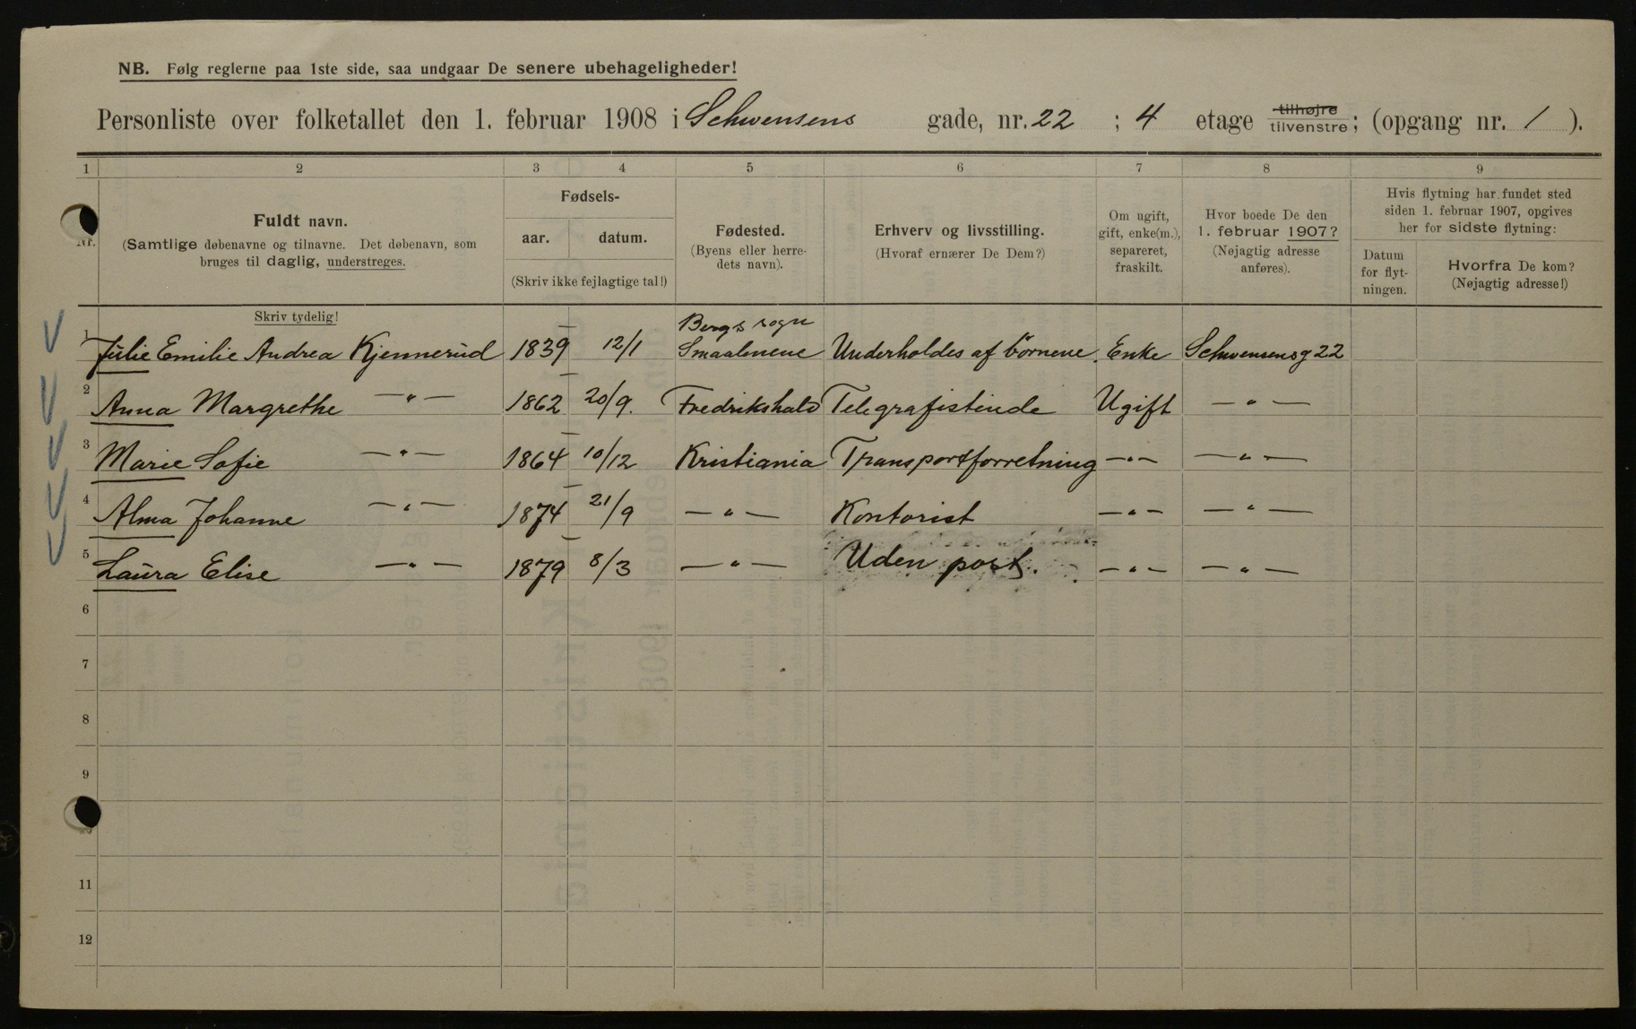 NB. Følg reglerne paa 1ste side, saa undgaar De senere ubehageligheder!
Personliste over folketallet den 1. februar 1908 i Schwensens gade, nr. 22 ; 4 etage tilhøjre tilvenstre; (opgang nr. 1 ).
1 2 3 4 5 6 7 8 9
Nr.
Fuldt navn.
(Samtlige døbenavne og tilnavne. Det døbenavn, som
bruges til daglig, understreges.
Skriv tydelig!
Fødsels-
aar. datum.
(Skriv ikke fejlagtige tal!)
Fødested.
(Byens eller herre-
dets navn).
Erhverv og livsstilling.
(Hvoraf ernærer De Dem?)
Om ugift,
gift, enke(m.),
separeret,
fraskilt.
Hvor boede De den
1. februar 1907?
(Nøjagtig adresse
anføres).
Hvis flytning har fundet sted
siden 1. februar 1907, opgives
her for sidste flytning:
Datum
for flyt-
ningen.
Hvorfra De kom?
(Nøjagtig adresse!)
Bergs sogn
1 Julie Emilie Andrea Kjennerud 1839 12/1 Smaalenene Underholdes af börnene. Enke Schwensensg 22
2 Anna Margrethe —"— 1862 20/9. Fredrikshald Telegrafistinde Ugift —"—
3 Marie Sofie —"— 1864 10/12 Kristiania Transportforretning —"— —"—
4 Alma Johanne —"— 1874 21/9 —"— Kontorist —"— —"—
5 Laura Elise —"— 1879 8/3 —"— Uden post. —"— —"—
6
7
8
9
11
12